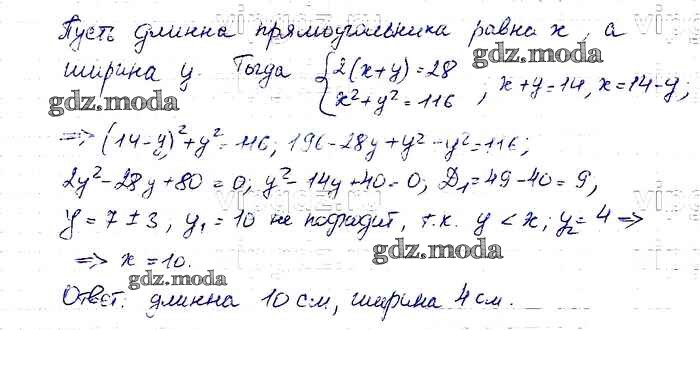 Пусть длинна прямоугольника равна x, а
gdz.moda
ширина y. Тогда { 2(x+y)=28 x²+y²=116, x+y=14, x=14-y;
gdz.moda
=> (14-y)²+y²=116; 196-28y+y²+y²=116;
2y²-28y+80=0; y²-14y+40=0; D₁=49-40=9,
y=7±3; y₁=10 не подходит, т.к. y<x; y₂=4 =>
gdz.moda
=> x=10.
gdz.moda
Ответ: длинна 10 см, ширина 4 см.